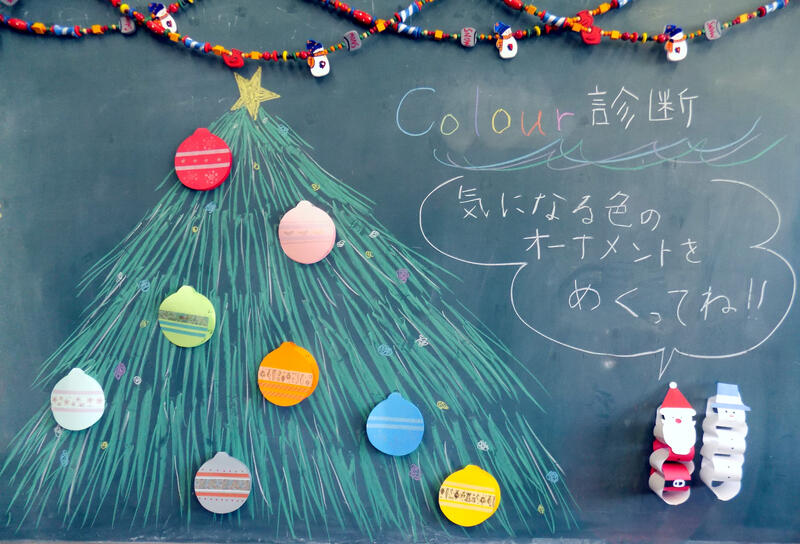 Colour 診断
気になる色の
オーナメントを
めくってね!!